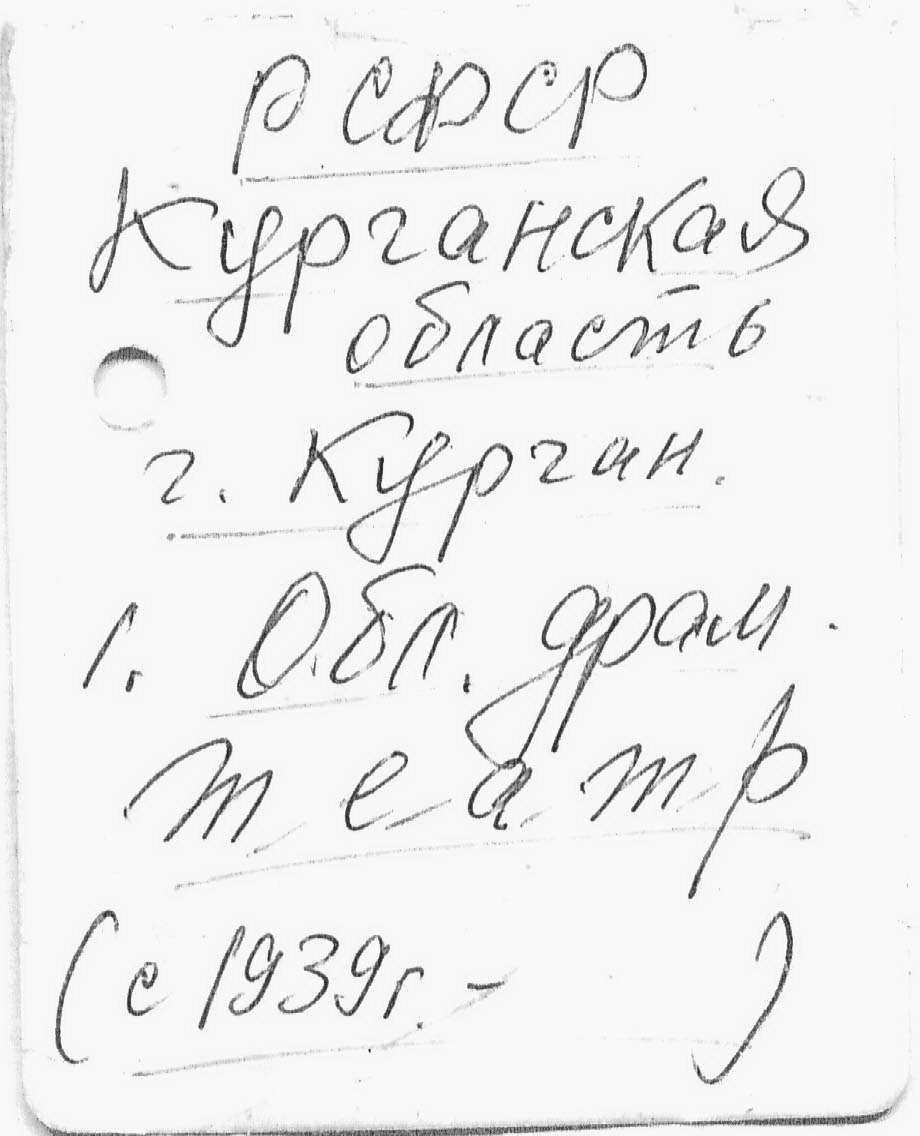 РСФСР
Курганская
область
г. Курган.
1. Обл. драм.
театр
(с 1939г. - )